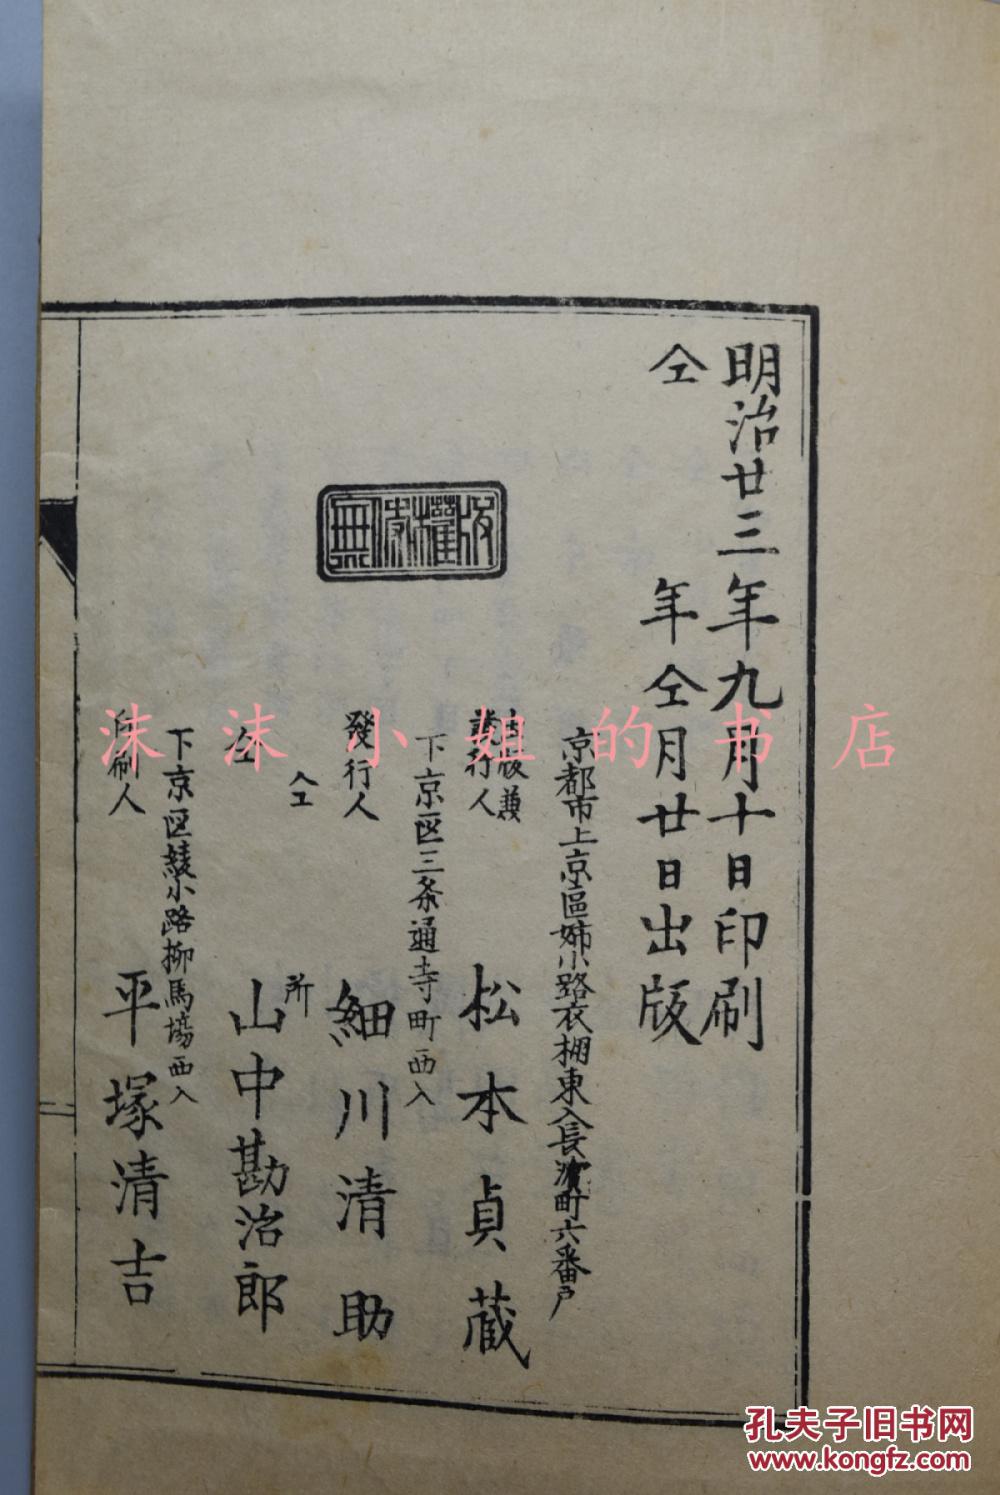 明治廿三年九月十日印刷
仝 年仝月廿日出版
版權所無
京都市上京區姊小路衣棚東入長濱町六番戶
出版兼
發行人 松本貞蔵
下京区三条通寺町西入
發行人 細川清助
仝 所
仝 山中勘治郎
下京区綾小路柳馬場西入
印刷人 平塚清吉
沫沫小姐的书店
孔夫子旧书网
www.kongfz.com